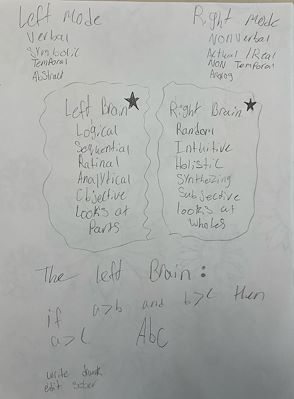 Left Mode
Verbal
Symbolic
Temporal
Abstract
Right Mode
NonVerbal
Actual / Real
NON Temporal
Analog
Left Brain
Logical
Sequential
Ratinal
Analytical
Objective
Look's at
Parts
Right Brain
Random
Intuitive
Holistic
Synthezing
Subjective
look's at
wholes
The left Brain :
if a>b and b>c then
a>c Abc
write drunk
edit sober